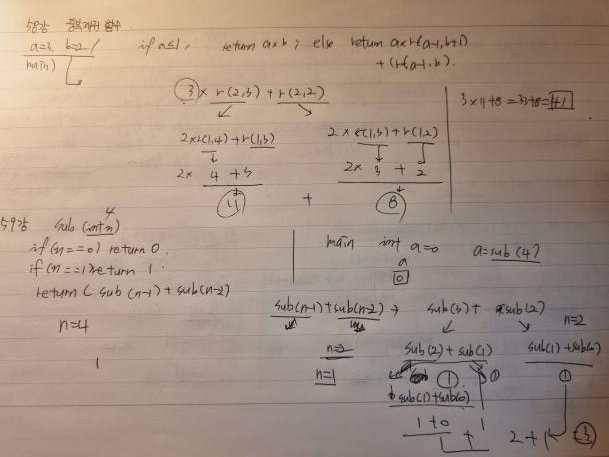 58강 중복재귀 함수.
a=3, b=2 / if a≤1, return a×b ; else return a×r(a-1, b+1)
main) + (r(a-1, b).
3 × r(2,3) + r(2,2)
3×11+8 = 33+8 = 41
2×r(1,4) + r(1,3) 2 × r(1,3) + r(1,2)
2× 4 + 3 2× 3 + 2
11 + 8
4
59강 sub (int n)
if (n==0) return 0
if (n==1) return 1
return ( sub (n-1) + sub(n-2)
n=4
1
main int a=0 a=sub (4)
a
0
sub(n-1) + sub(n-2) → sub(3) + sub(2)
n=2
n=2 sub(2) + sub(1) sub(1) + sub(0)
n=1 1 1 1
sub(1) + sub(0)
1 + 0 + 1 2 + 1 = 3